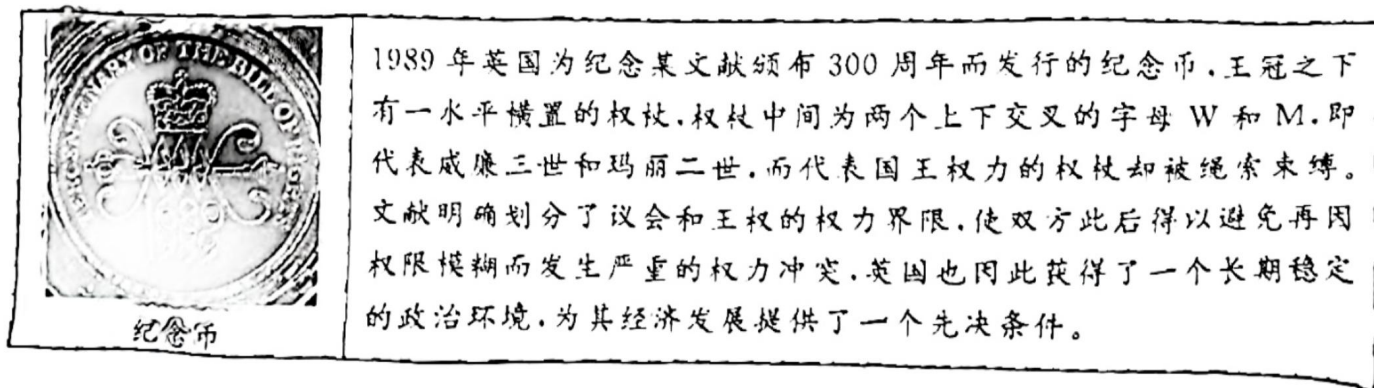 TERCENTENARY OF THE BILL OF RIGHTS
1689
1989
纪念币
1989年英国为纪念某文献颁布300周年而发行的纪念币,王冠之下
有一水平横置的权杖,权杖中间为两个上下交叉的字母W和M,即
代表威廉三世和玛丽二世,而代表国王权力的权杖却被绳索束缚。
文献明确划分了议会和王权的权力界限,使双方此后得以避免再因
权限模糊而发生严重的权力冲突,英国也因此获得了一个长期稳定
的政治环境,为其经济发展提供了一个先决条件。